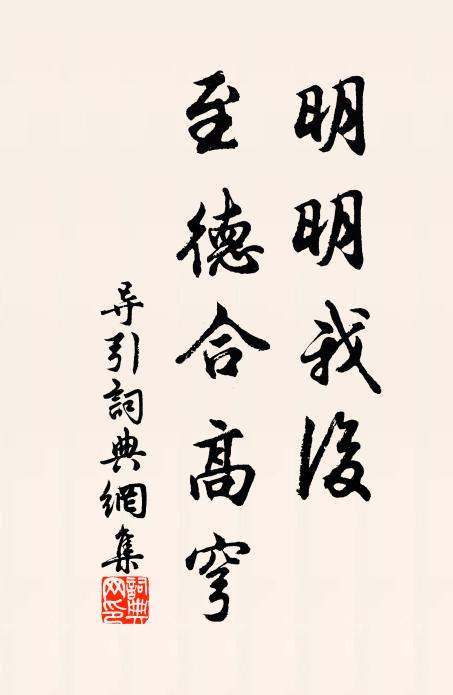 明明我後
至德合高穹
导引詞典網集
詞典網印